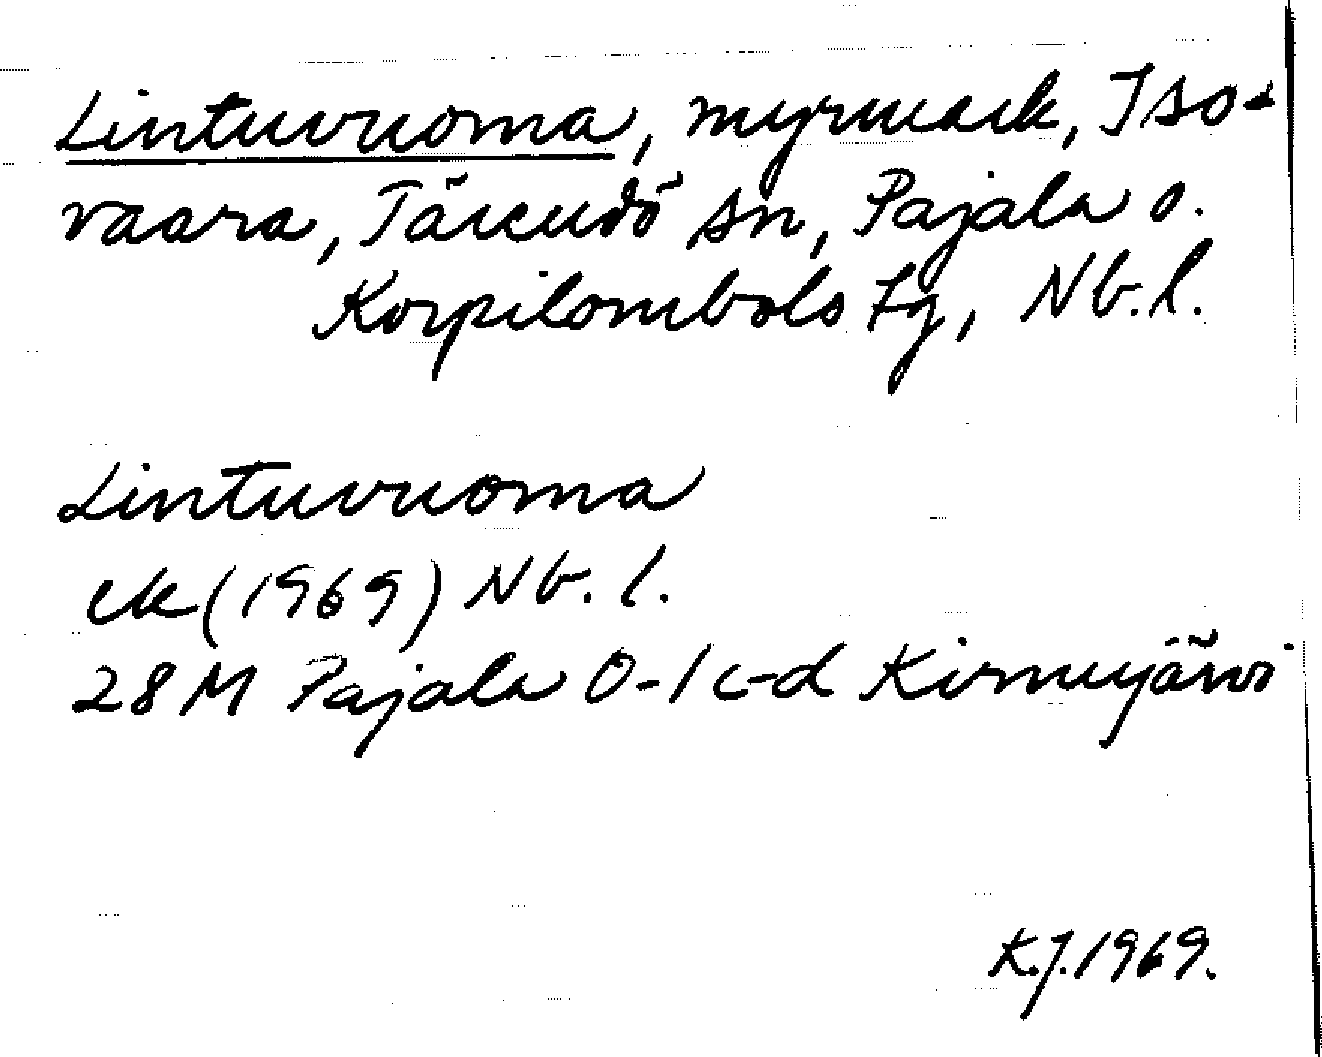 Lintuvuoma, myrmark, Iso-
vaara, Tärendö sn, Pajala o.
Korpilombolo tg, Nb.l.
Lintuvuoma
ek (1969) Nb.l.
28 M Pajala 0-1 c-d Kirnujärvi
K.J. 1969.